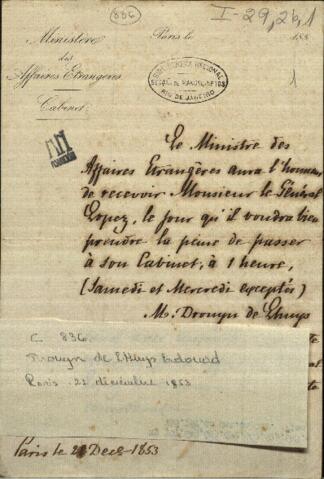 836
I-29,26,1
Ministère
des
Affaires Etrangères
Cabinet
Paris le 185
BIBLIOTHECA NACIONAL
RIO DE JANEIRO
1
Le Ministre des
Affaires Etrangères aura l'honneur
de recevoir Monsieur le Général
Lopez, le jour qu'il voudra bien
prendre la peine de passer
à son Cabinet, à 1 heure,
(Samedi et Mercredi exceptés)
M. Drouyn de Lhuys
C 836
Drouyn de Lhuys Edouard
Paris 22 décembre 1853
te
Paris le Dec 1853